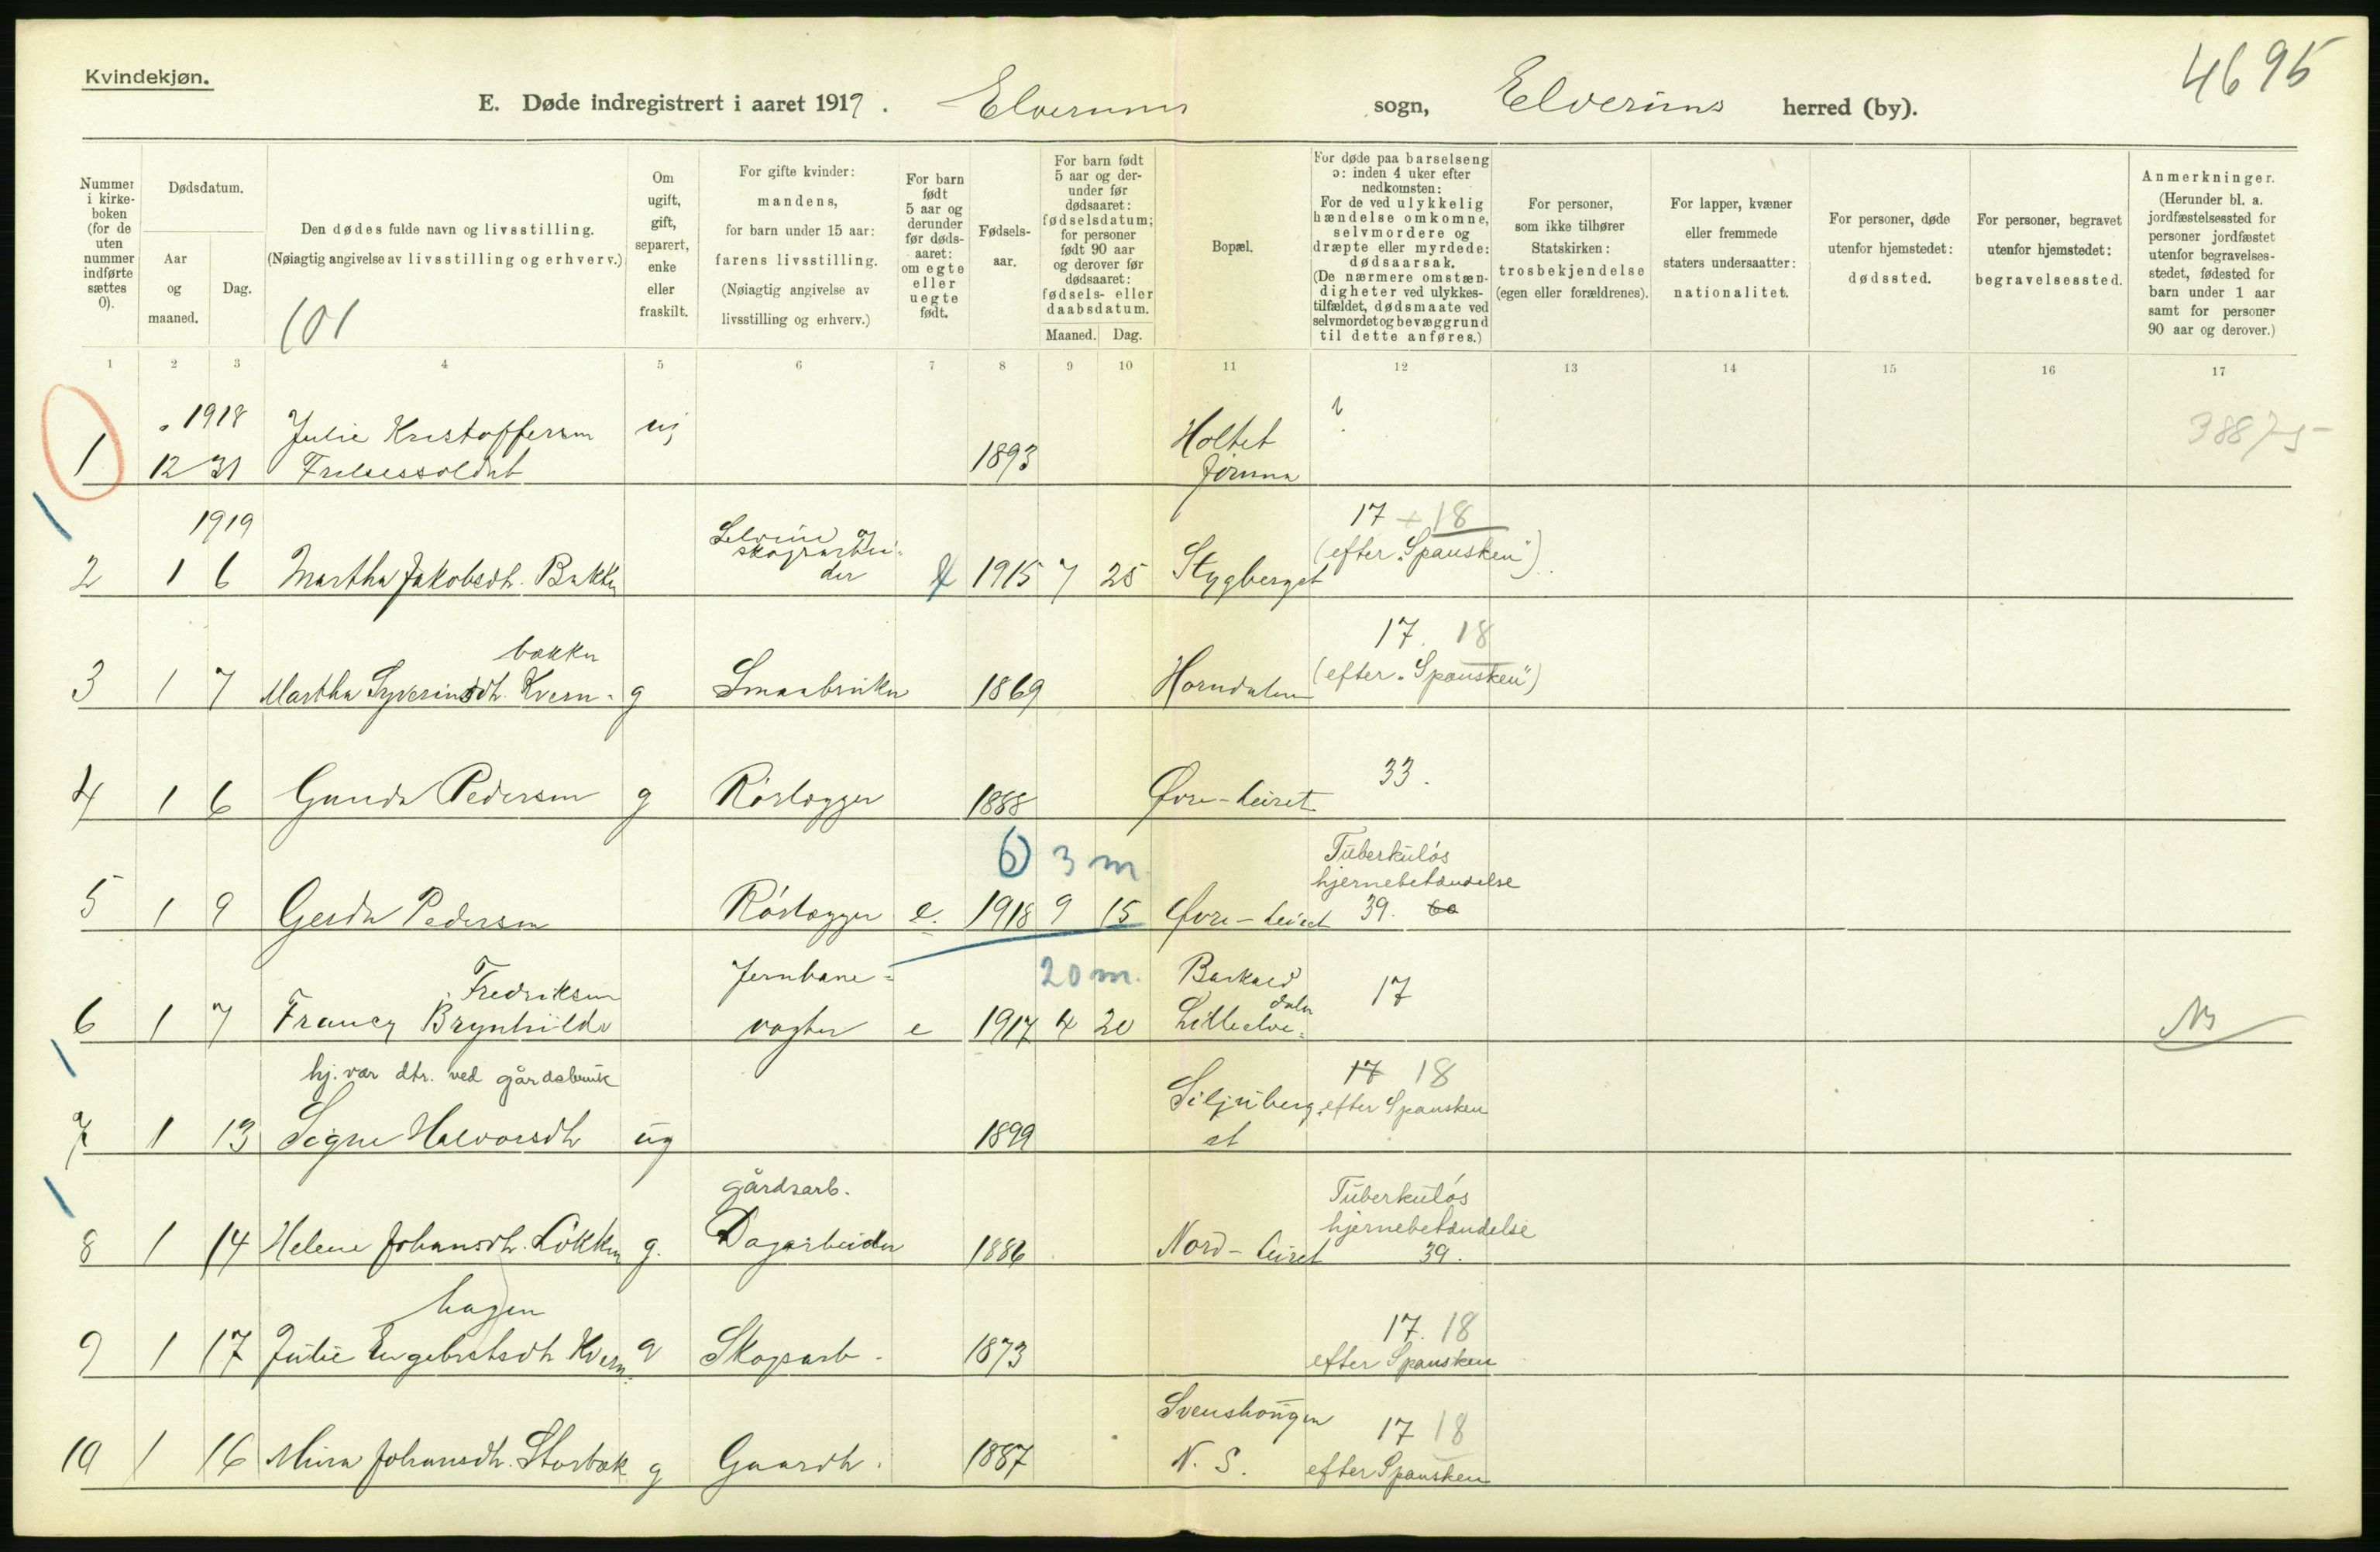 Kvindekjøn.
4695
E. Døde indregistrert i aaret 1919. Elverums sogn, Elverums herred (by).
Nummer i kirkeboken (for de uten nummer indførte sættes 0).
Dødsdatum.
Aar og maaned.
Dag.
Den dødes fulde navn og livsstilling.
(Nøiagtig angivelse av livsstilling og erhverv.)
101
Om ugift, gift, separert, enke eller fraskilt.
For gifte kvinder: mandens, for barn under 15 aar: farens livsstilling. (Nøiagtig angivelse av livsstilling og erhverv.)
For barn født 5 aar og derunder før dødsaaret: om egte eller uegte født.
Fødselsaar.
For barn født 5 aar og derunder før dødsaaret: fødselsdatum; for personer født 90 aar og derover før dødsaaret: fødsels- eller daabsdatum.
Maaned. Dag.
Bopæl.
For døde paa barselseng ɔ: inden 4 uker efter nedkomsten:
For de ved ulykkelig hændelse omkomne, selvmordere og dræpte eller myrdede: dødsaarsak.
(De nærmere omstændigheter ved ulykkestilfældet, dødsmaate ved selvmordet og bevæggrund til dette anføres.)
For personer, som ikke tilhører Statskirken: trosbekjendelse (egen eller forældrenes).
For lapper, kvæner eller fremmede staters undersaatter: nationalitet.
For personer, døde utenfor hjemstedet: dødssted.
For personer, begravet utenfor hjemstedet: begravelsessted.
Anmerkninger.
(Herunder bl. a. jordfæstelsessted for personer jordfæstet utenfor begravelsesstedet, fødested for barn under 1 aar samt for personer 90 aar og derover.)
1 2 3 4 5 6 7 8 9 10 11 12 13 14 15 16 17
1918 Julie Kristoffersen ug Holtet ?
1 12 31 Frelsessoldat 1893 Jømna
38875
1919 17 + 18
Selveier og skogsarbeider (efter "Spansken")
2 1 6 Martha Jakobsdt. Bakken 1915 7 25 Stygberget
bakken 17. 18
3 1 7 Martha Syverinsdt. Kvern- g Smaabruker 1869 Horndalen (efter "Spansken")
4 1 6 Gunda Pedersen g Rørlægger 1888 Øvre-Leiret 33.
6) 3 m. Tuberkuløs hjernebetændelse
5 1 9 Gerda Pedersen Rørlægger e. 1918 9 15 Øvre-Leiret 39.
Fredriksen Jernbane= 20 m.
6 1 7 Francy Brynhilds vogter e 1917 4 20 Lilleelvdalen 17
hj. var dtr. ved gårdsbruk 17 18
7 1 13 Signe Halvorsdt ug 1899 Siljuberget efter Spansken
gårdsarb. Tuberkuløs hjernebetændelse
8 1 14 Helene Johansdt. Løkken g. Dagarbeider 1886 Nord-Leiret 39.
hagen 17. 18
9 1 17 Julie Engebretsdt Kvern- g Skogsarb. 1873 efter Spansken
17 18
10 1 16 Mina Johansdt. Storbæk g Gaardb. 1887 N. S. efter Spansken